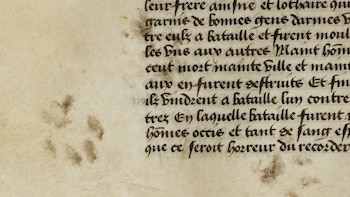 leur frere ainsne et lothaire qui
garnis de bonnes gens darmes v
tre eulz a bataille et furent moul
les vns aux autres Maint hõm
ceut mort mainte ville et maint
aux en furent destruits Et fin
ilz vindrent a bataille lun contre
trez En laquelle bataille furent
hõmes occis et tant de sang esp
que ce seroit horreur du recorder